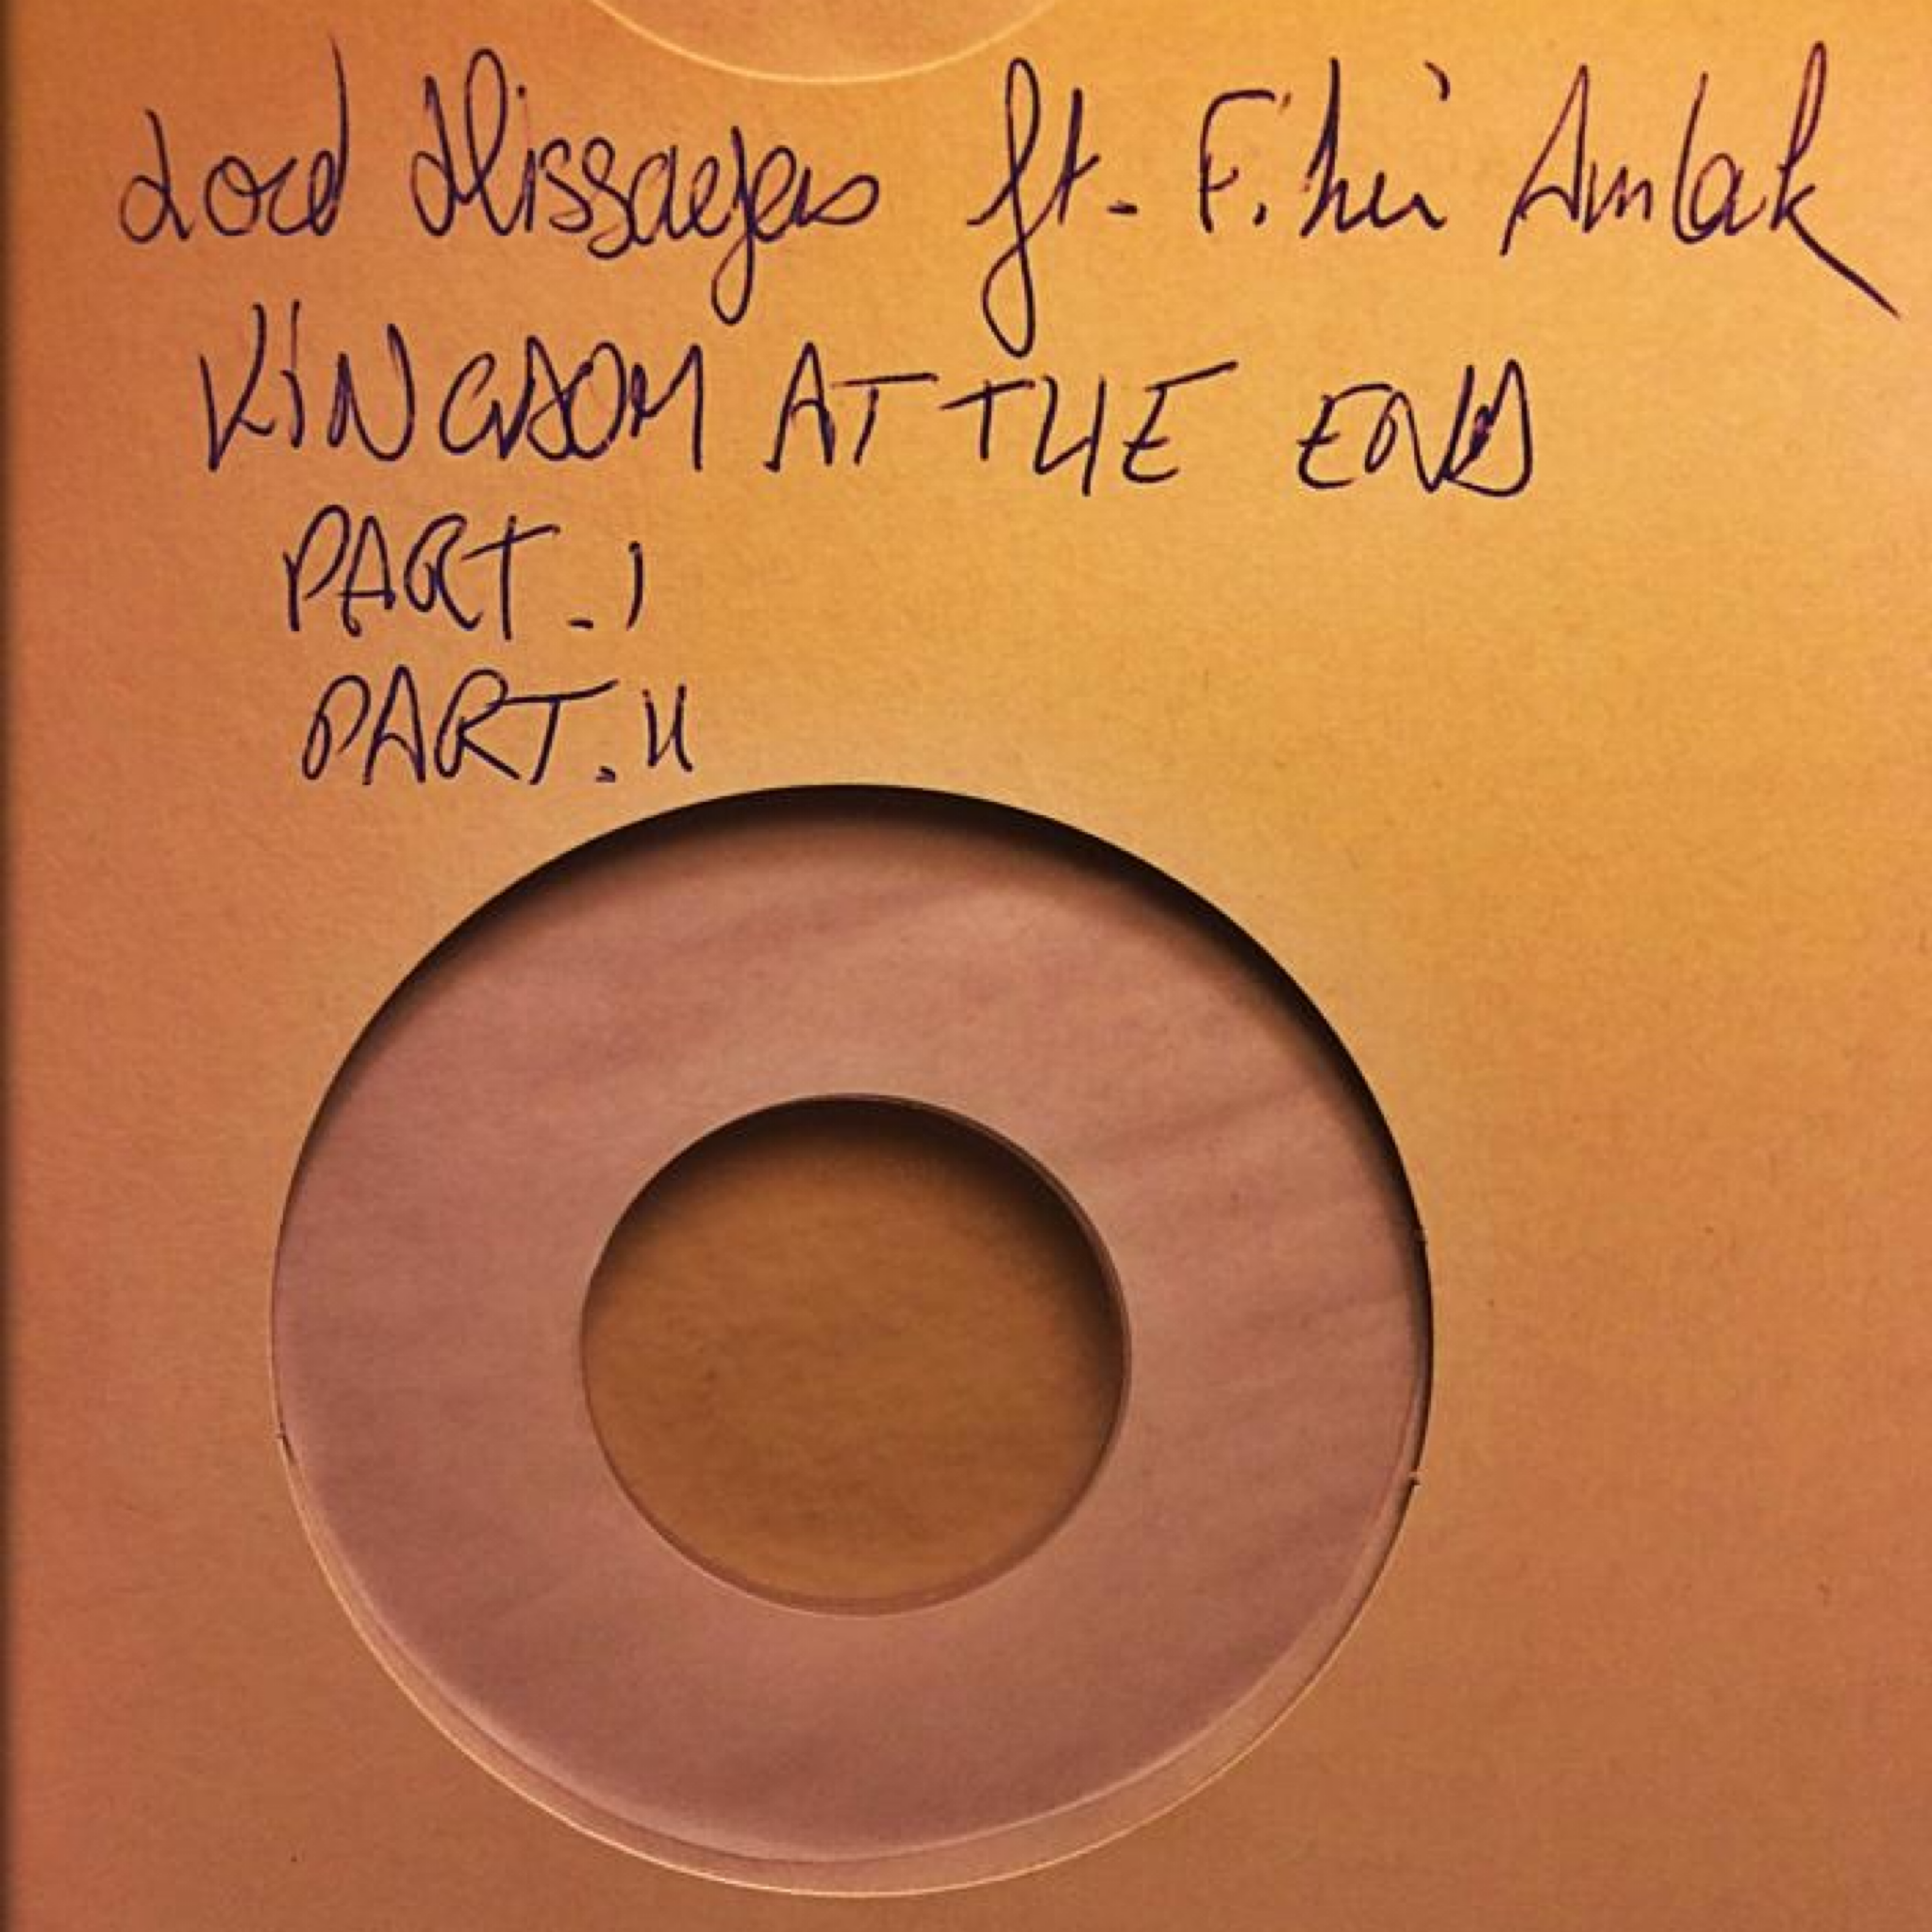 Lord Missagens ft. F. hù Amlak
KINGDOM AT THE END
PART. I
PART. II